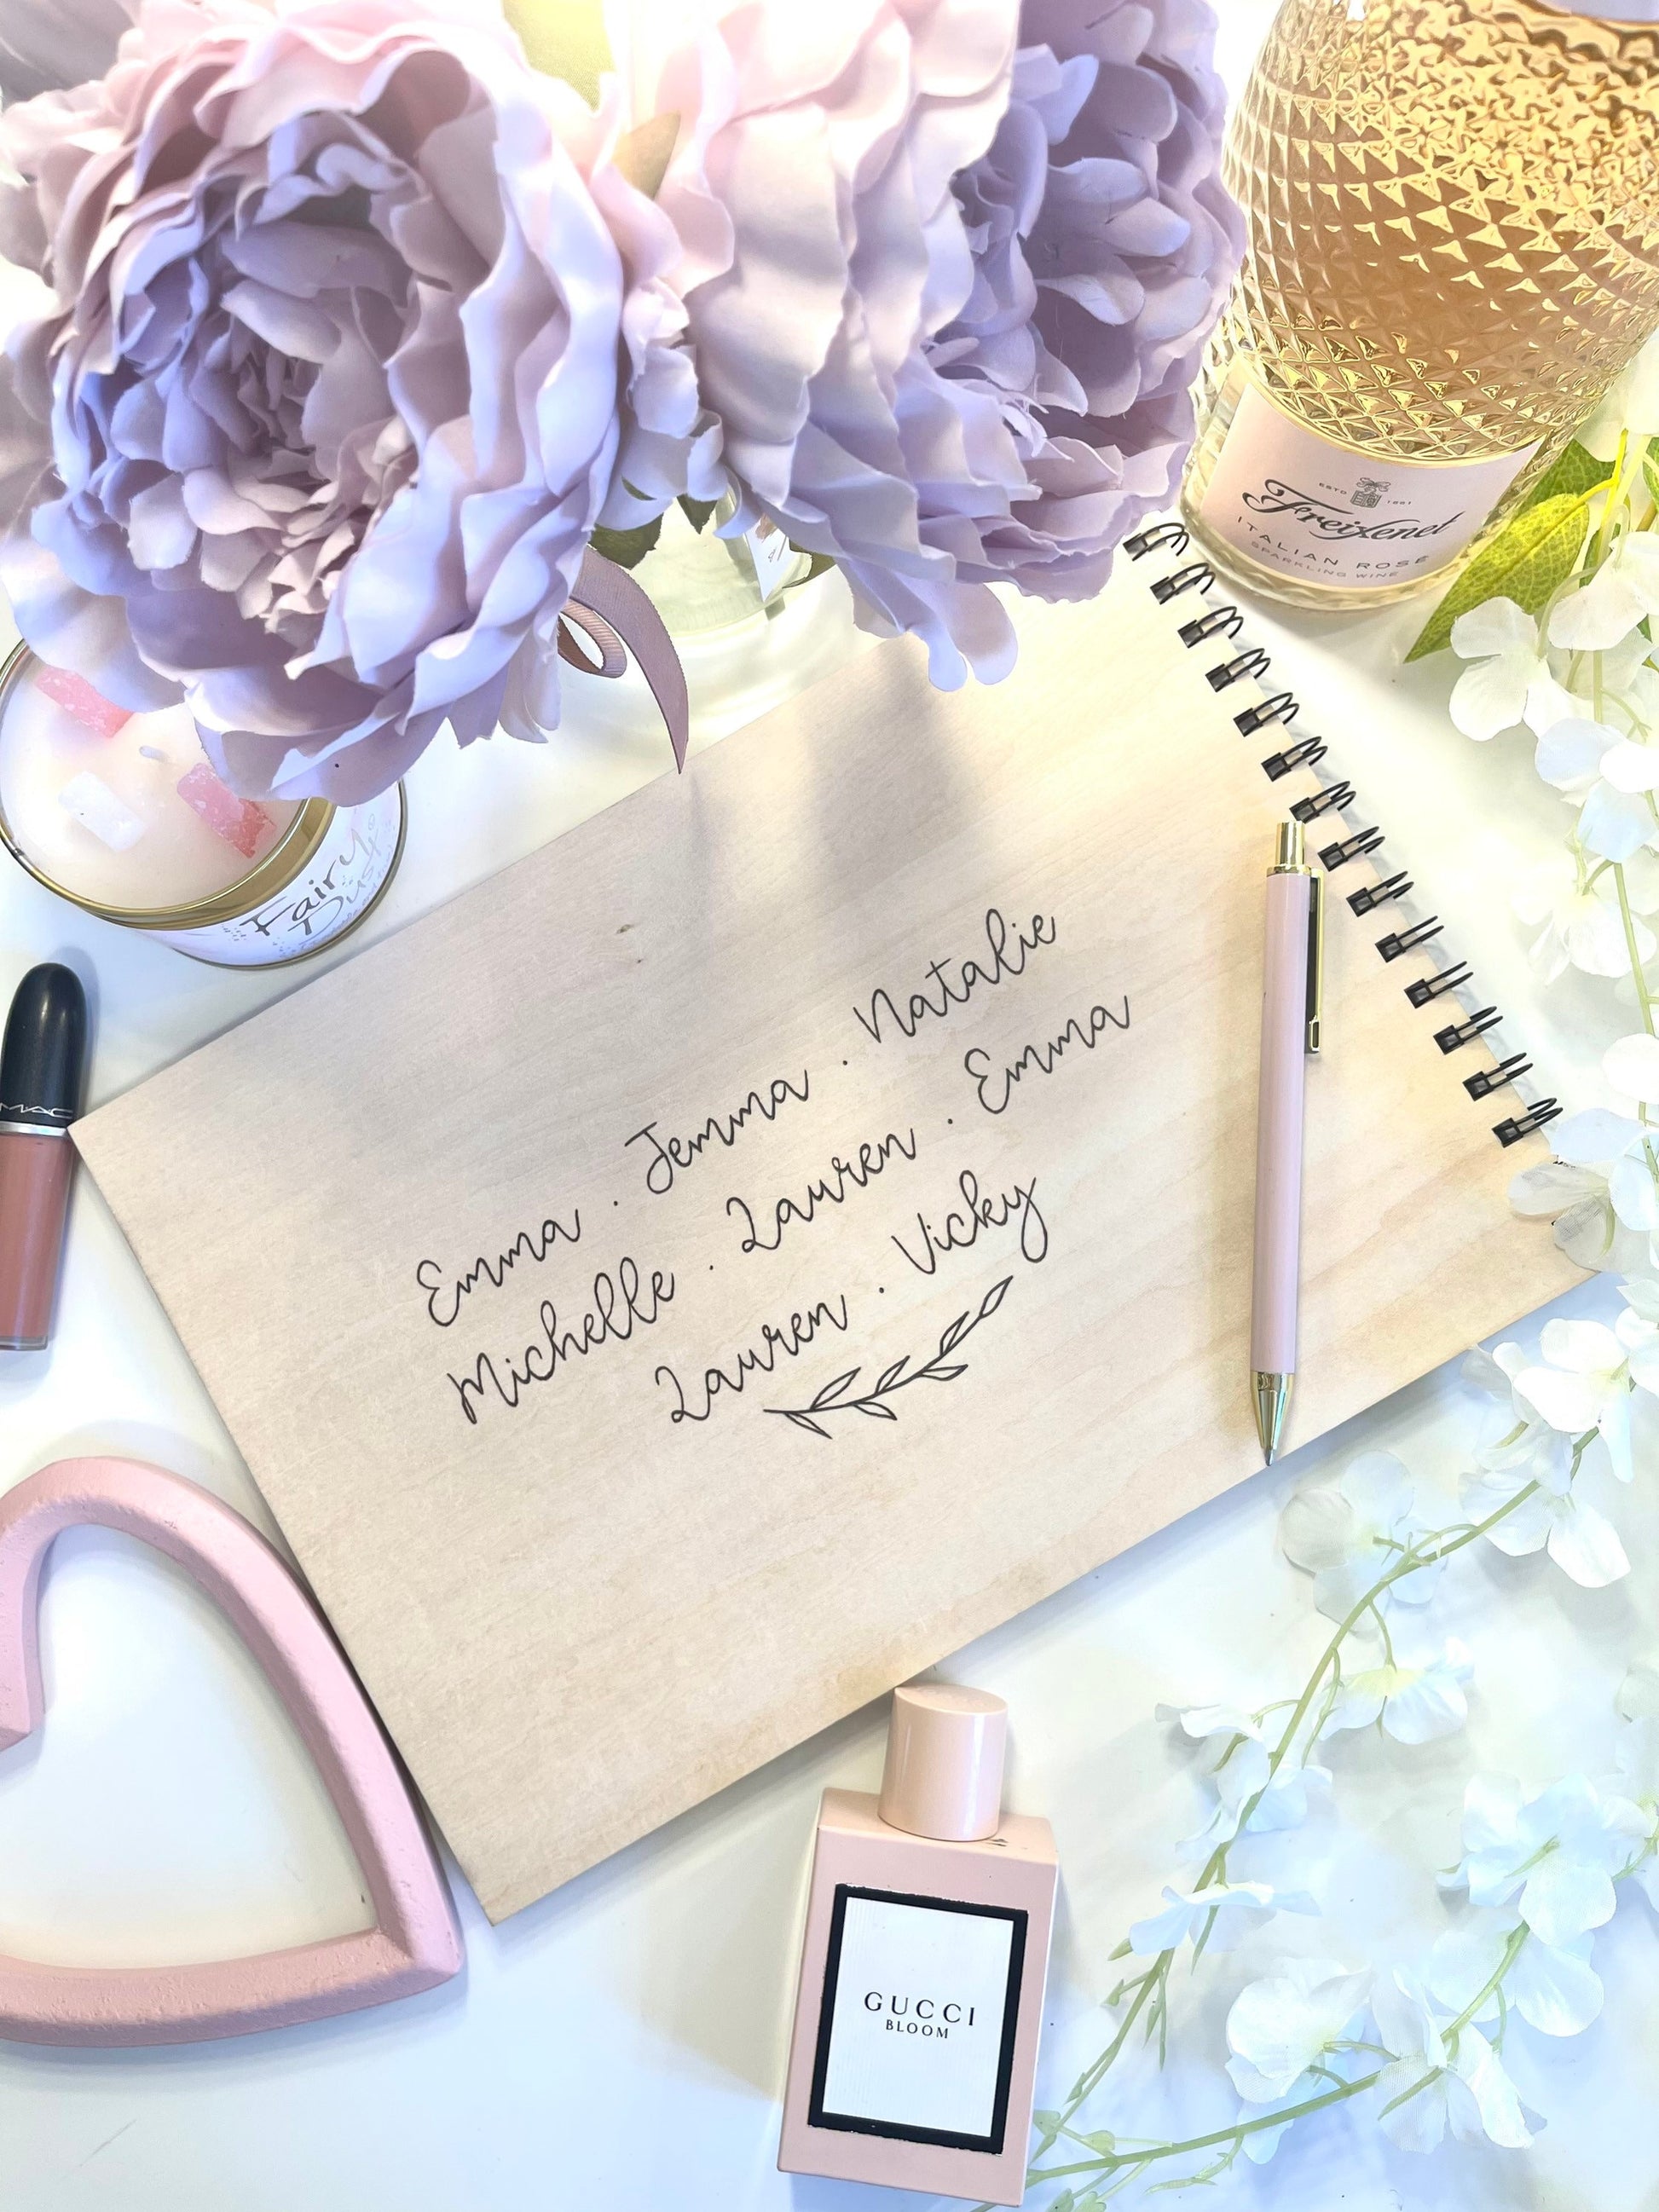 ESTD 1861
Freixenet
ITALIAN ROSÉ
SPARKLING WINE
Fairy
Dust
MAC
Emma . Jemma . Natalie
Michelle . Lauren . Emma
Lauren . Vicky
GUCCI
BLOOM